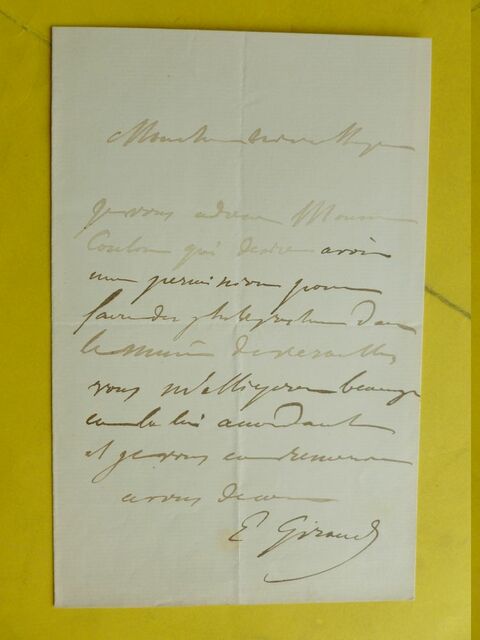 Mon cher
je vous adresse Monsieur
Coulon qui desire avoir
une permission pour
faire des photographies dans
le Musée de Versailles
vous m'obligerez beaucoup
en la lui accordant
et je vous en remercie
a vous de coeur
E Giraud